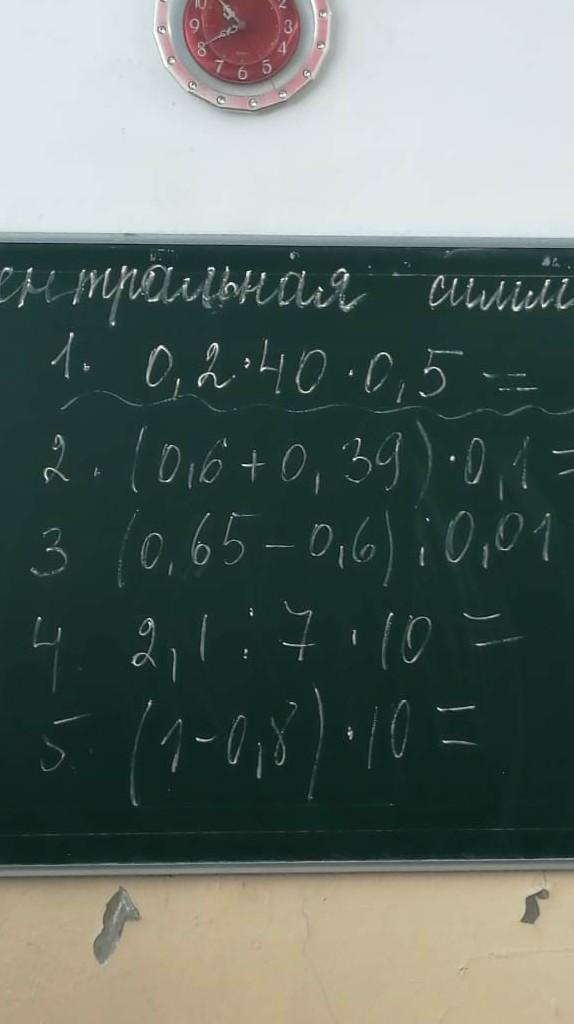 10 2
9 3
8 4
7 6 5
ентральная симм
1. 0,2·40·0,5 =
2. (0,6+0,39)·0,1 =
3 (0,65-0,6):0,01
4. 2,1:7·10 =
5. (1-0,8)·10 =